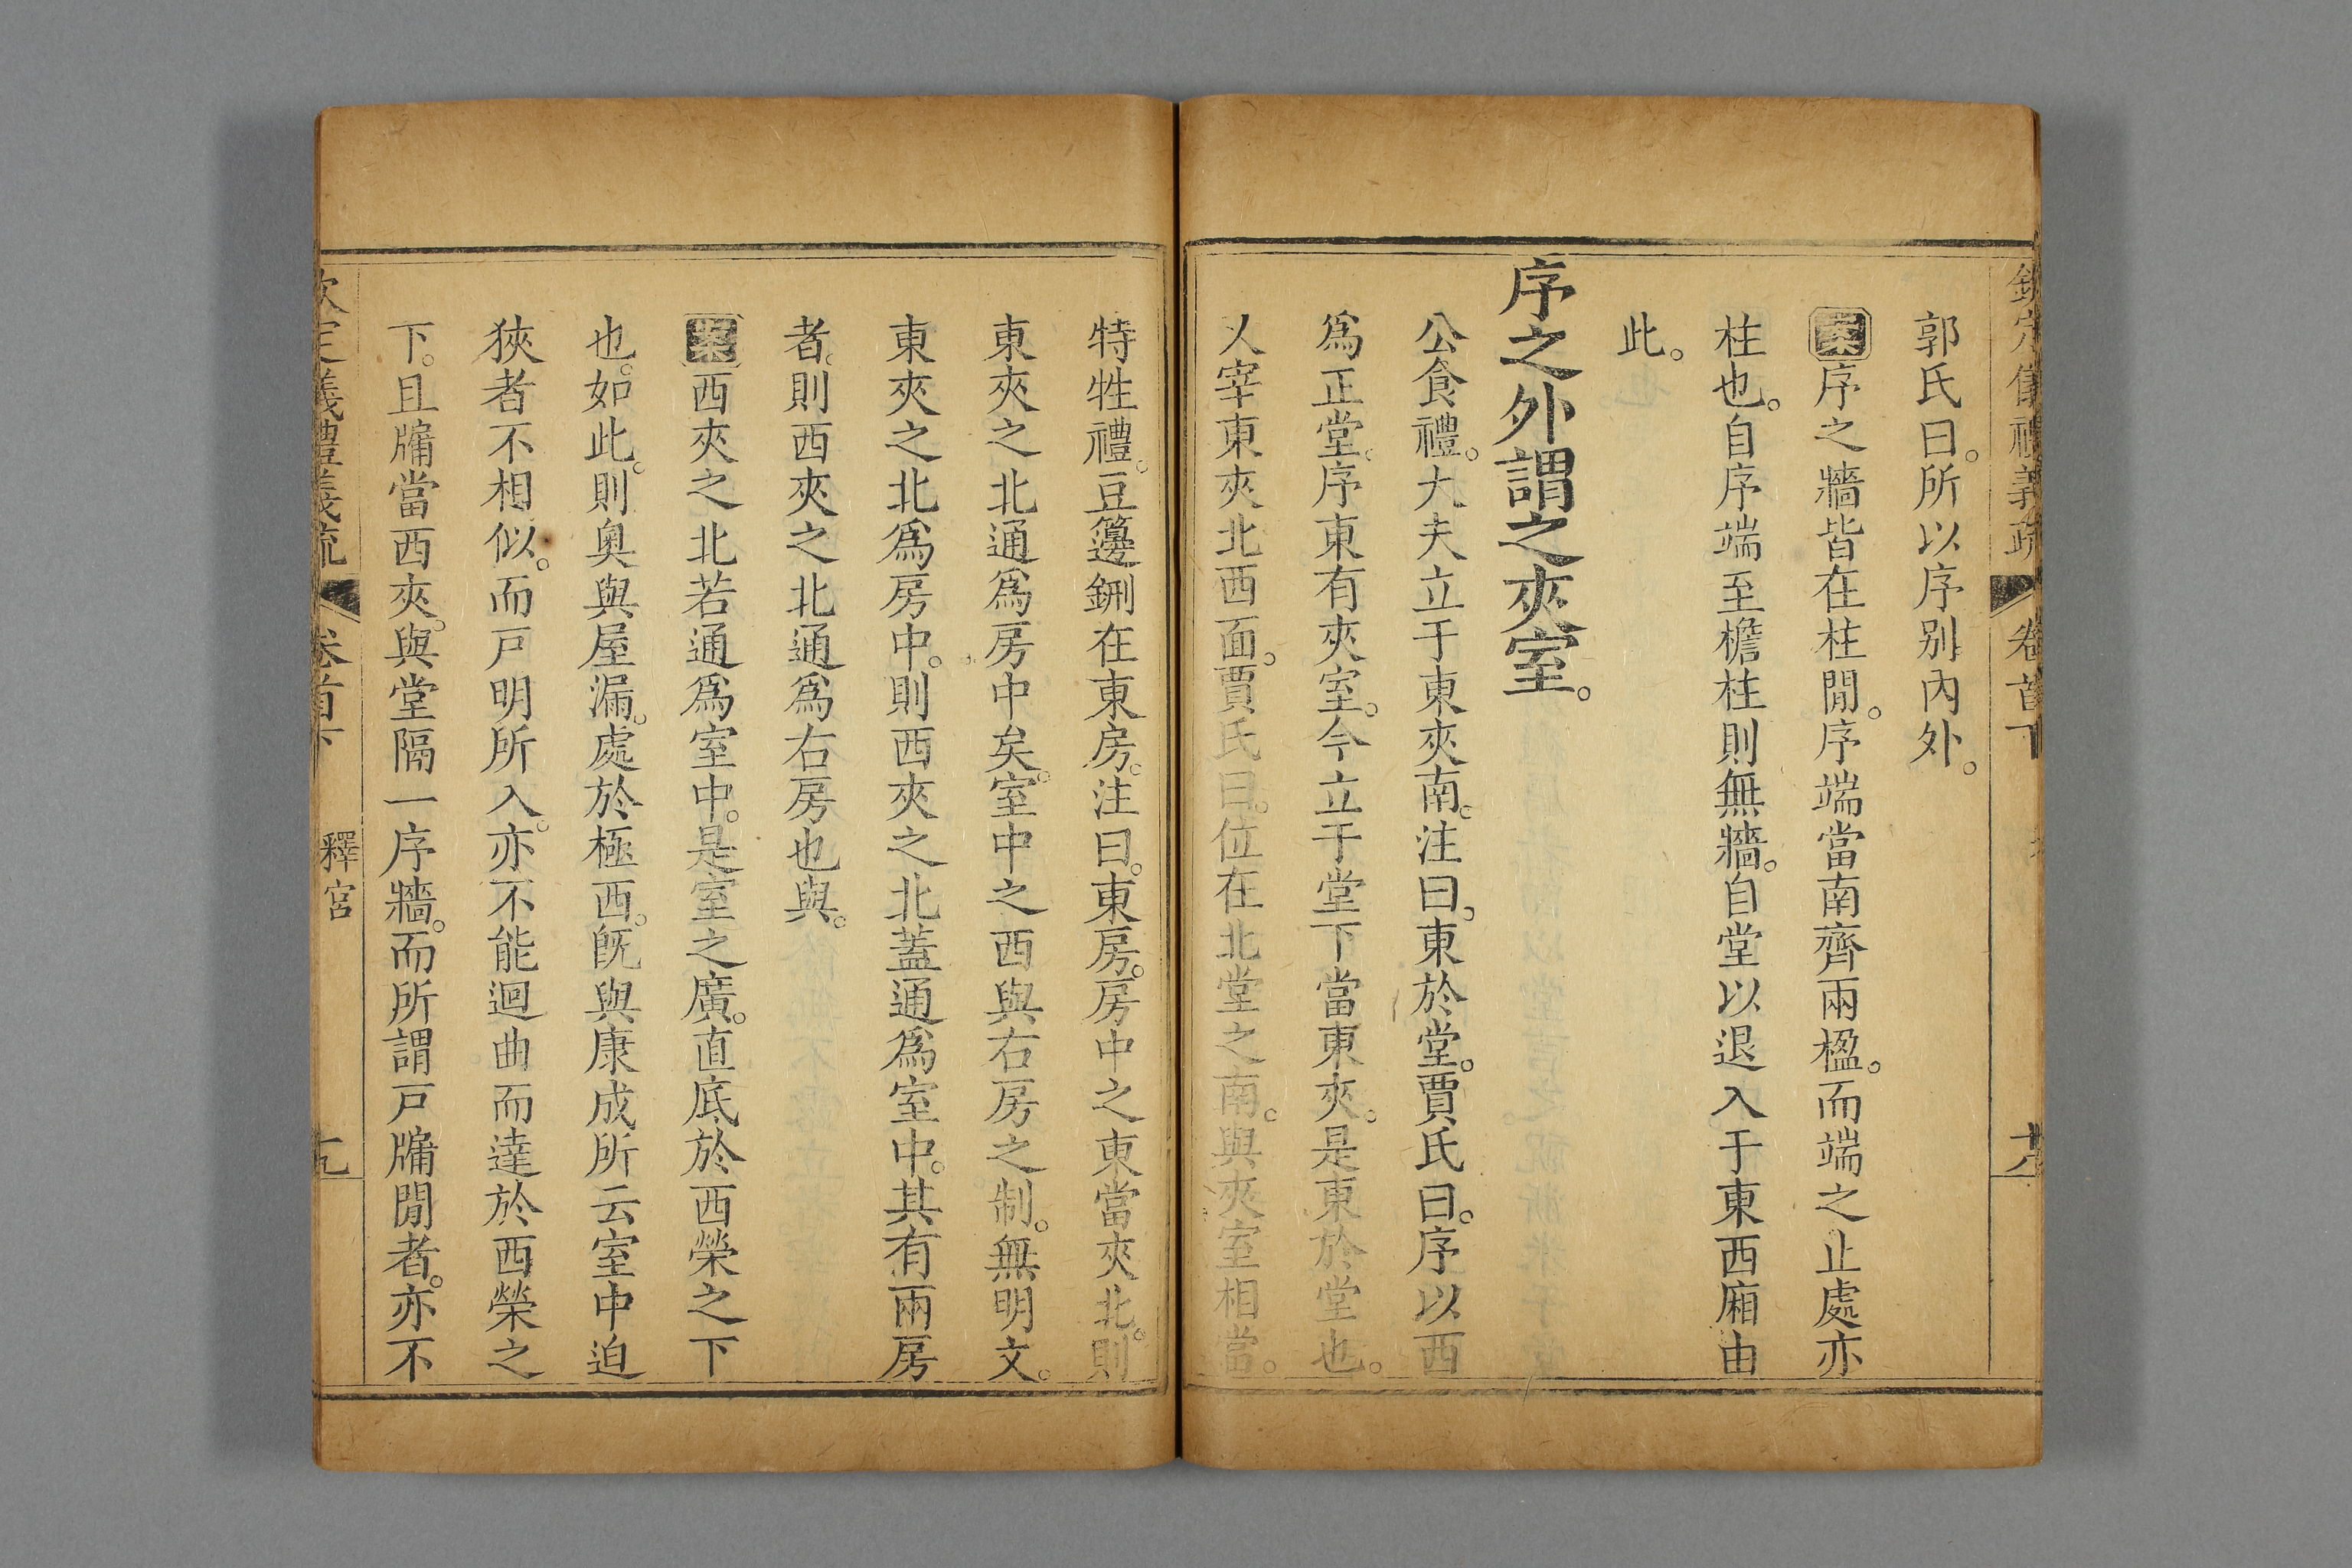 欽定儀禮義疏 卷首下
郭氏曰。所以序别內外。
案序之牆皆在柱閒。序端當南齊兩楹。而端之止處亦
柱也。自序端至檐柱則無牆。自堂以退入于東西廂由
此。
序之外謂之夾室。
公食禮。大夫立于東夾南。注曰。東於堂。賈氏曰。序以西
爲正堂。序東有夾室。今立于堂下當東夾。是東於堂也。
乂宰東夾北西面。賈氏曰。位在北堂之南。與夾室相當。
特牲禮。豆籩鉶在東房。注曰。東房。房中之東當夾北。則
東夾之北通爲房中矣。室中之西與右房之制。無明文。
東夾之北爲房中。則西夾之北蓋通爲室中。其有兩房
者。則西夾之北通爲右房也與。
案西夾之北若通爲室中。是室之廣。直底於西榮之下
也。如此。則奥與屋漏。處於極西。旣與康成所云室中迫
狹者不相似。而戸明所入。亦不能迴曲而達於西榮之
下。且牖當西夾。與堂隔一序牆。而所謂戸牖閒者。亦不
欽定義禮義疏 卷首下 釋宮